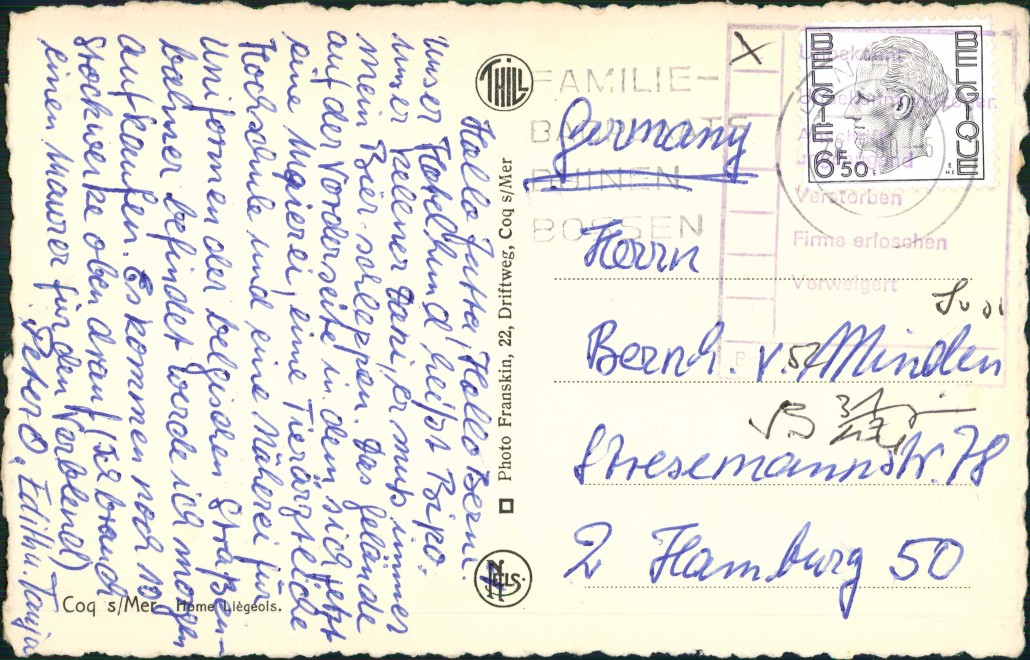 Hallo Jutta, Hallo Berni.
Unser Jagdhund heißt Bipo.
unser Kellner Hani, er muß immer
mein Bier schleppen. Das Gelände
auf der Vorderseite in dem sich jetzt
eine Mägierei, eine Tierärztliche
Hochschule und eine Näherei für
Uniformen der belgischen Straßen-
bahner befindet werde ich morgen
aufkaufen. Es kommen noch 10
Stockwerke oben drauf (Ihr braucht
einen Maurer für den Vorblend)
Peter O, Edith u. Tanja
Coq s/Mer - Home Liègeois.
THILL
Photo Franskin, 22, Driftweg, Coq s/Mer
NELS
FAMILIE-
BADPLAATS
DUINEN
BOSSEN
BELGIE
BELGIQUE
6F50
Unbekannt
Verstorben
Firma erloschen
Verweigert
X
Germany
Herrn
Bernh. v. Minden
Stresemannstr. 78
2 Hamburg 50
57